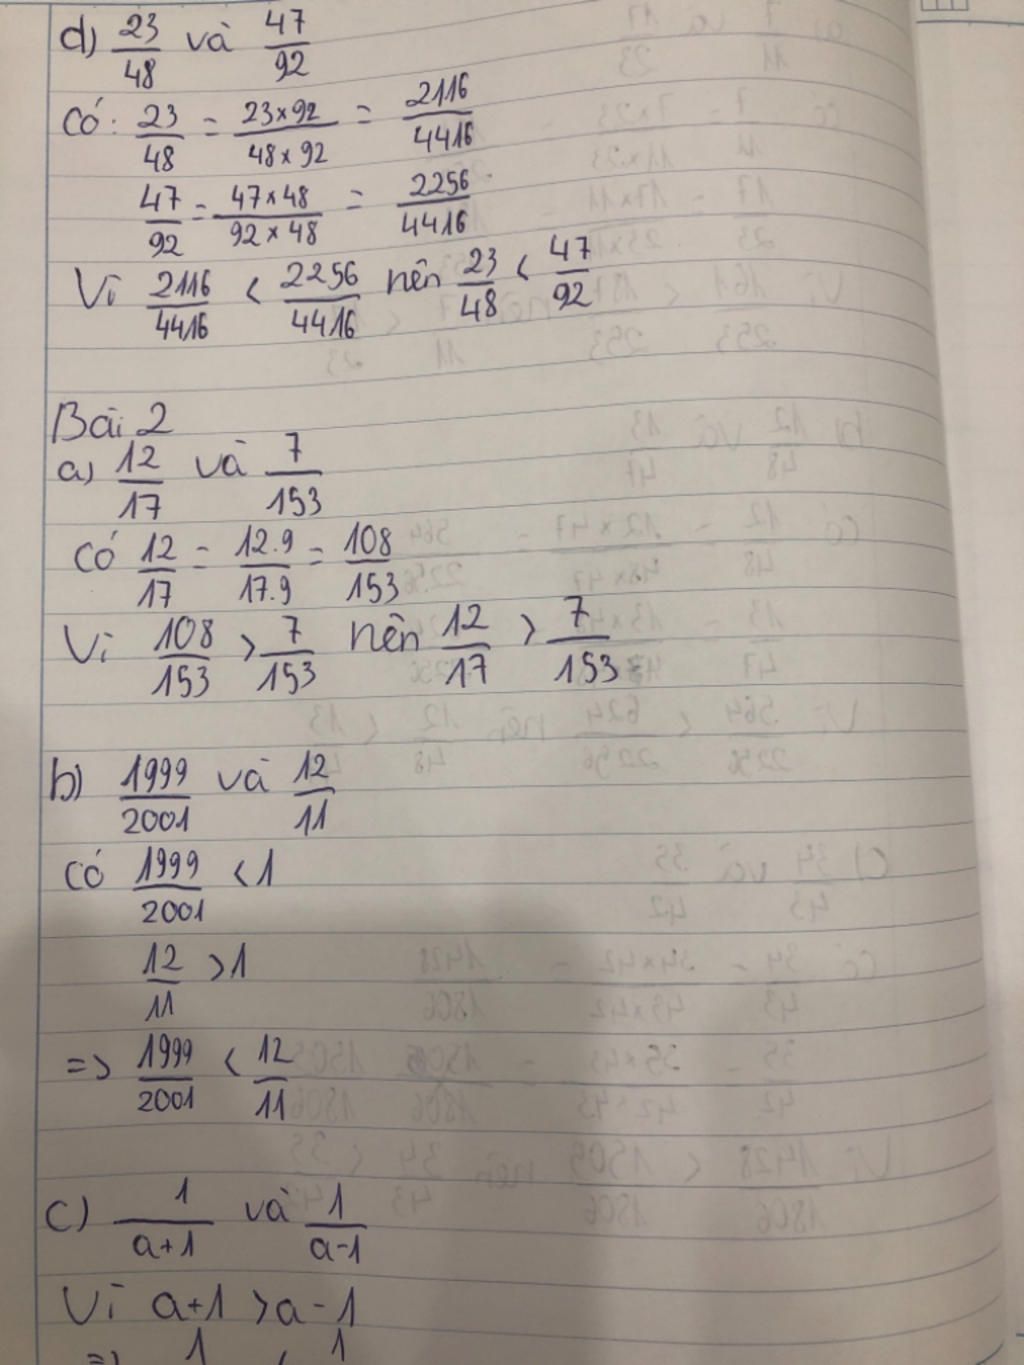 d) 23/48 và 47/92
Có: 23/48 = 23×92/48×92 = 2116/4416
47/92 = 47×48/92×48 = 2256/4416
Vì 2116/4416 < 2256/4416 nên 23/48 < 47/92
Bài 2
a) 12/17 và 7/153
Có 12/17 = 12.9/17.9 = 108/153
Vì 108/153 > 7/153 nên 12/17 > 7/153
b) 1999/2001 và 12/11
Có 1999/2001 < 1
12/11 > 1
=> 1999/2001 < 12/11
c) 1/a+1 và 1/a-1
Vì a+1 > a-1
=> 1 < 1